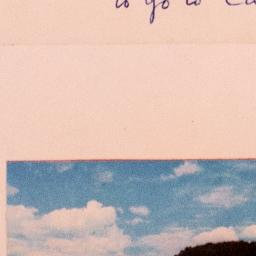 to go to